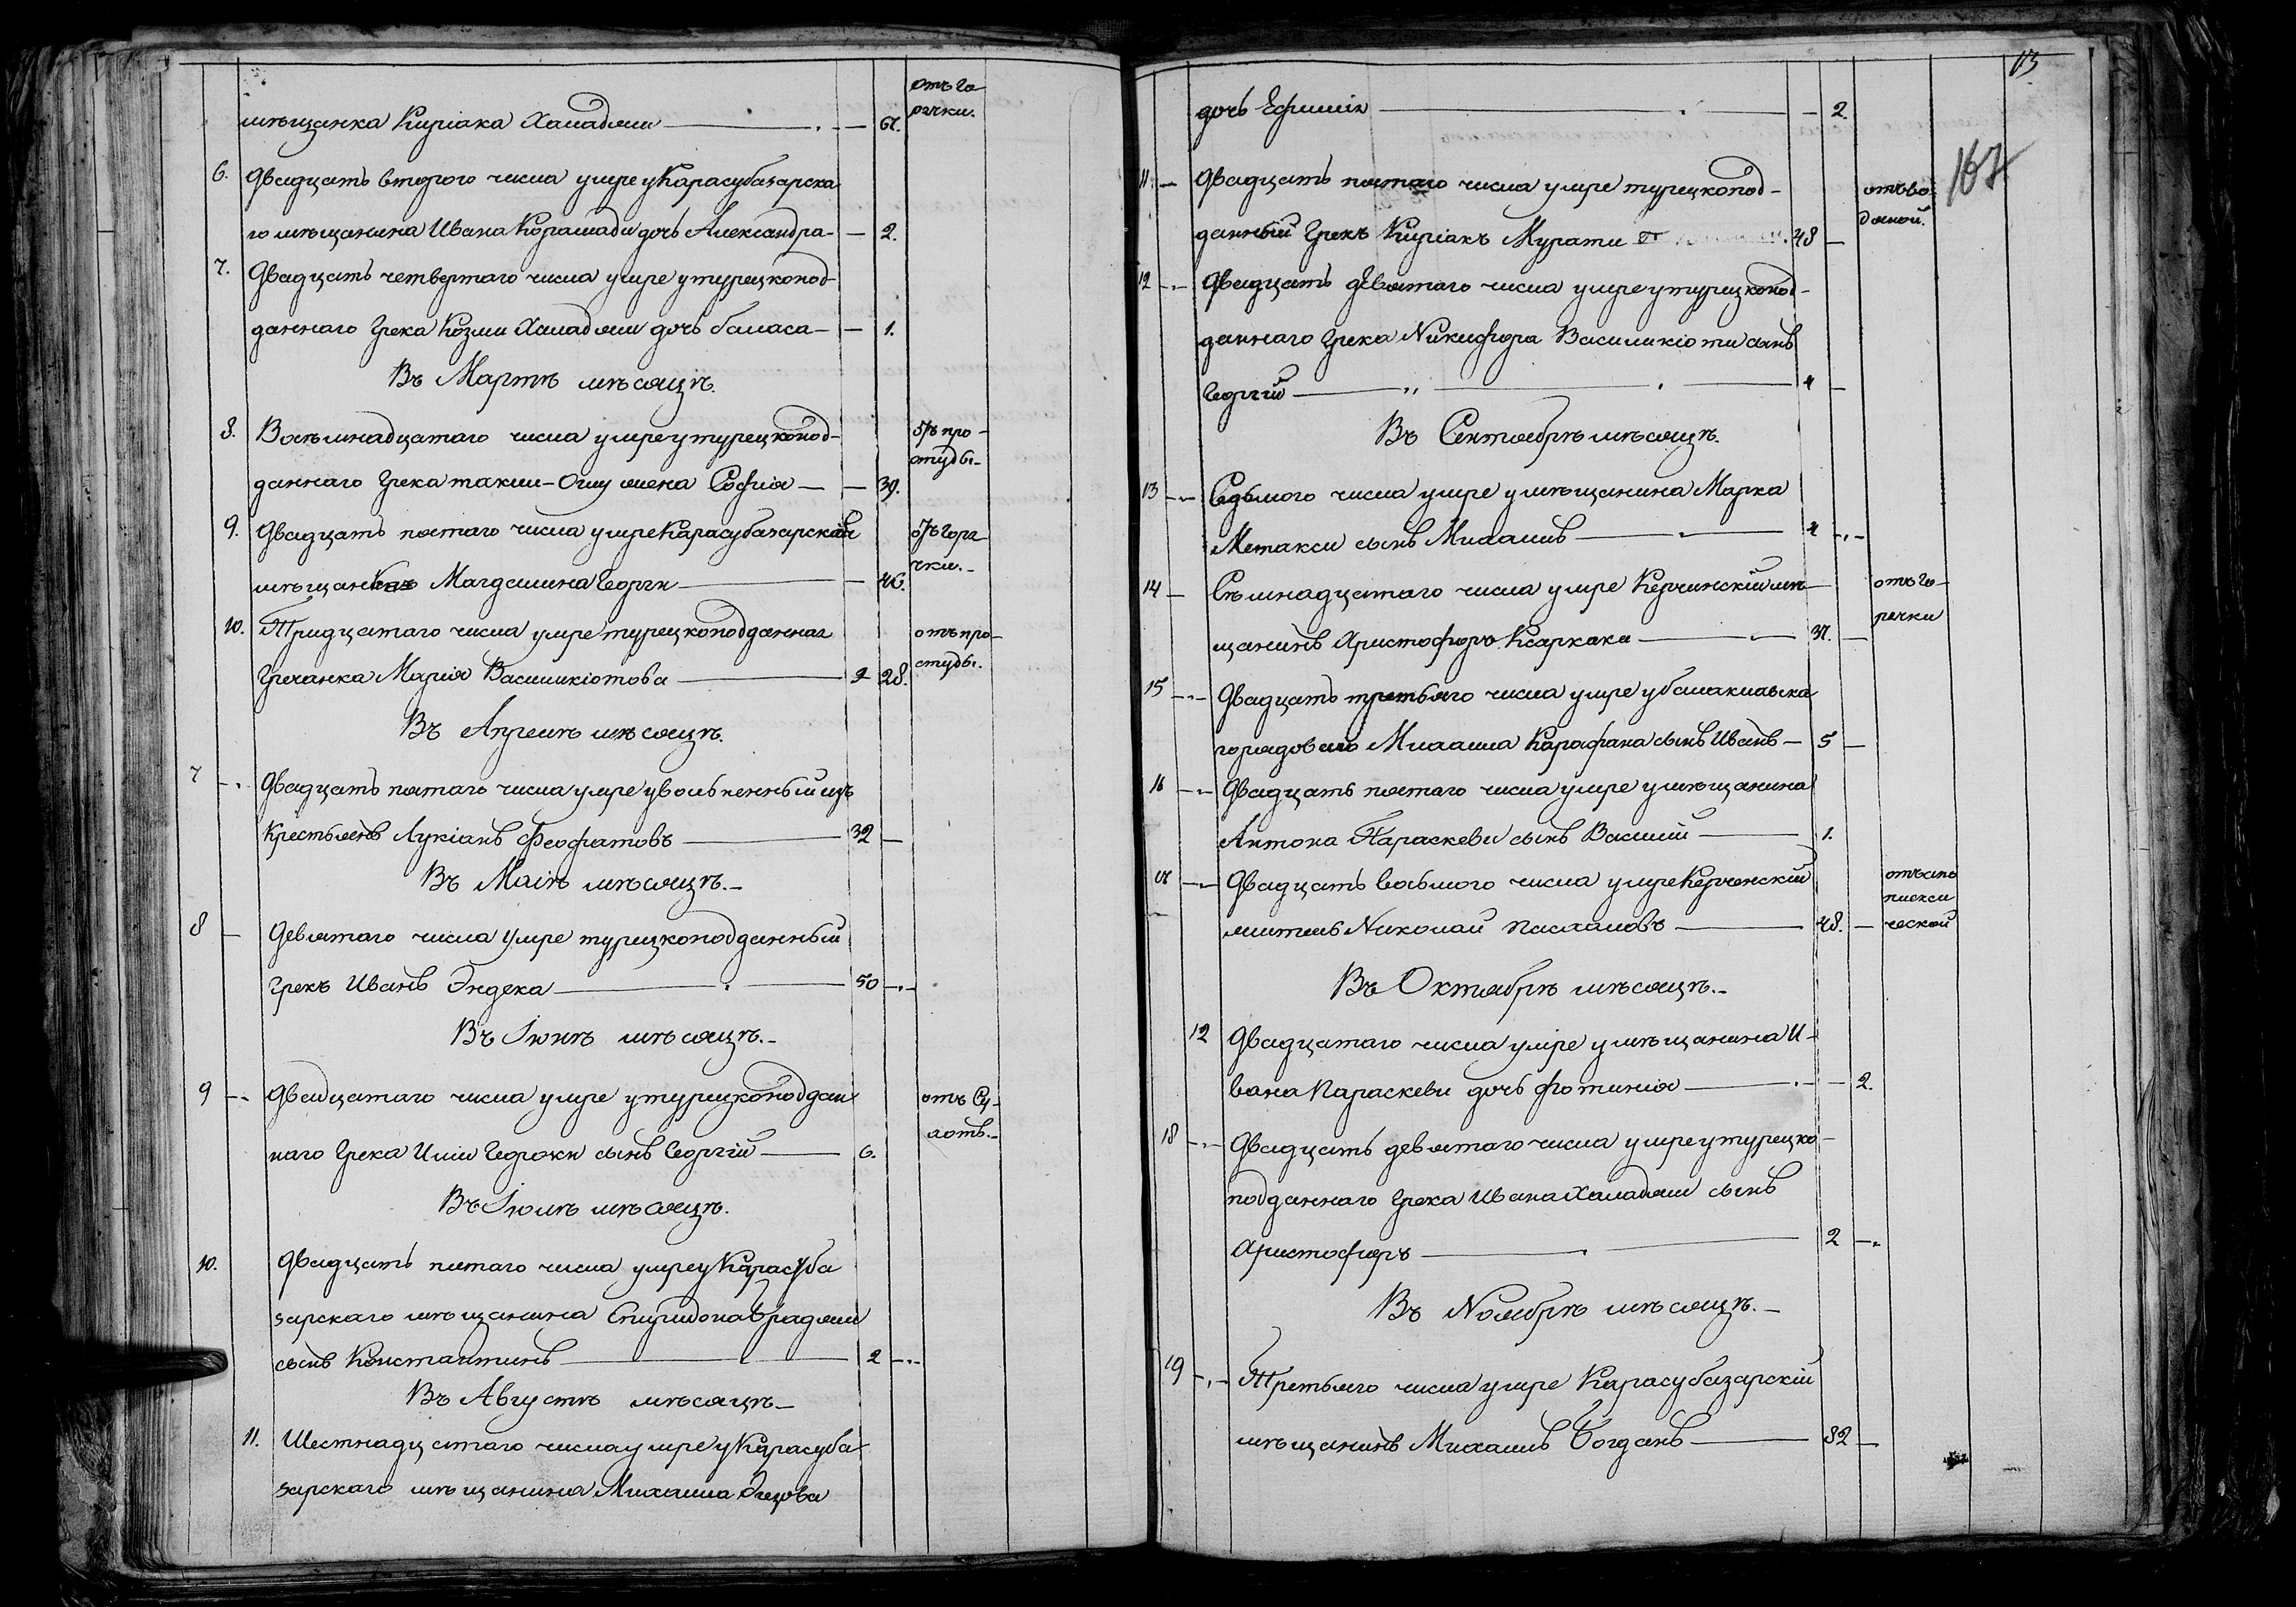 отъ го
рячки.
мѣщанка Киріака Халаджи — 67.
6. Двадцать втораго числа умре у Карасубазарска
го мѣщанина Ивана Корашади дочь Александра — 2.
7. Двадцать четвертаго числа умре у турецкопод-
даннаго Грека Козми Халаджи дочь баласа — 1.
Въ Мартѣ мѣсяцѣ.
8. Восемнадцатаго числа умре у турецкопод- отъ про-
даннаго Грека такши-Оглу жена Софія — 39. студы.
9. Двадцать пятаго числа умре Карасубазарская отъ горя-
Магдалина Георги — 46. чки.
10. Тридцатаго числа умре турецкоподданная отъ про-
Гречанка Марія Василикіотова — 28. студы.
Въ Апрелѣ мѣсяцѣ.
7 Двадцать пятаго числа умре уволненный изъ
крестьянъ Лукіанъ Феофатовъ — 32 —
Въ Маіѣ мѣсяцѣ.
8 — Девятаго числа умре турецкоподданный
Грекъ Иванъ Эндека — 50 —
Въ Іюнѣ мѣсяцѣ.
9 — Двадцатаго числа умре у турецкоподдан отъ Су-
наго Грека Ильи Георги сынъ Георгій — 6. хоть.
Въ Іюлѣ мѣсяцѣ.
10. Двадцать пятаго числа умре у Карасуба
зарскаго мѣщанина Спиридона
сынъ Константинъ — 2 —
Въ Августѣ мѣсяцѣ
11. Шестнадцатаго числа умре у Карасуба
зарскаго мѣщанина Михаила
113
167
дочь Ефимія — 2.
11. — Двадцать пятаго числа умре турецкопод- отъ во
данный Грекъ Киріакъ Мурати — 48 — дяной.
12 — Двадцать девятаго числа умре у турецкопод-
даннаго Грека Никифора Василикіоти сынъ
Георгій — 1 —
Въ Сентябрѣ мѣсяцѣ.
13 — Седьмого числа умре у мѣщанина Марка
Метакси сынъ Михаилъ — 1 —
14 — Семнадцатаго числа умре Керчинскій мѣ- отъ го-
щанинъ Христофоръ Ксаркака — 37. — рячки
15 — Двадцать третьяго числа умре у балаклавска
го рядоваго Михаила Карафака сынъ Иванъ — 5 —
16 — Двадцать пятаго числа умре у мѣщанина
Антона Параскеви сынъ Василій — 1.
17 — Двадцать восьмого числа умре Керченскій отъ апо
житель Николай Пасхаловъ — 48. — плекси
ческой
Въ Октябрѣ мѣсяцѣ.
12 Двадцатаго числа умре у мѣщанина И-
вана Параскеви дочь Фотинія — 2.
18 — Двадцать девятаго числа умре у турецко-
подданнаго Грека Ивана Халаджи сынъ
Христофоръ — 2 —
Въ Ноябрѣ мѣсяцѣ.
19 — Третьяго числа умре Карасубазарскій
мѣщанинъ Михаилъ Богданъ — 32 —